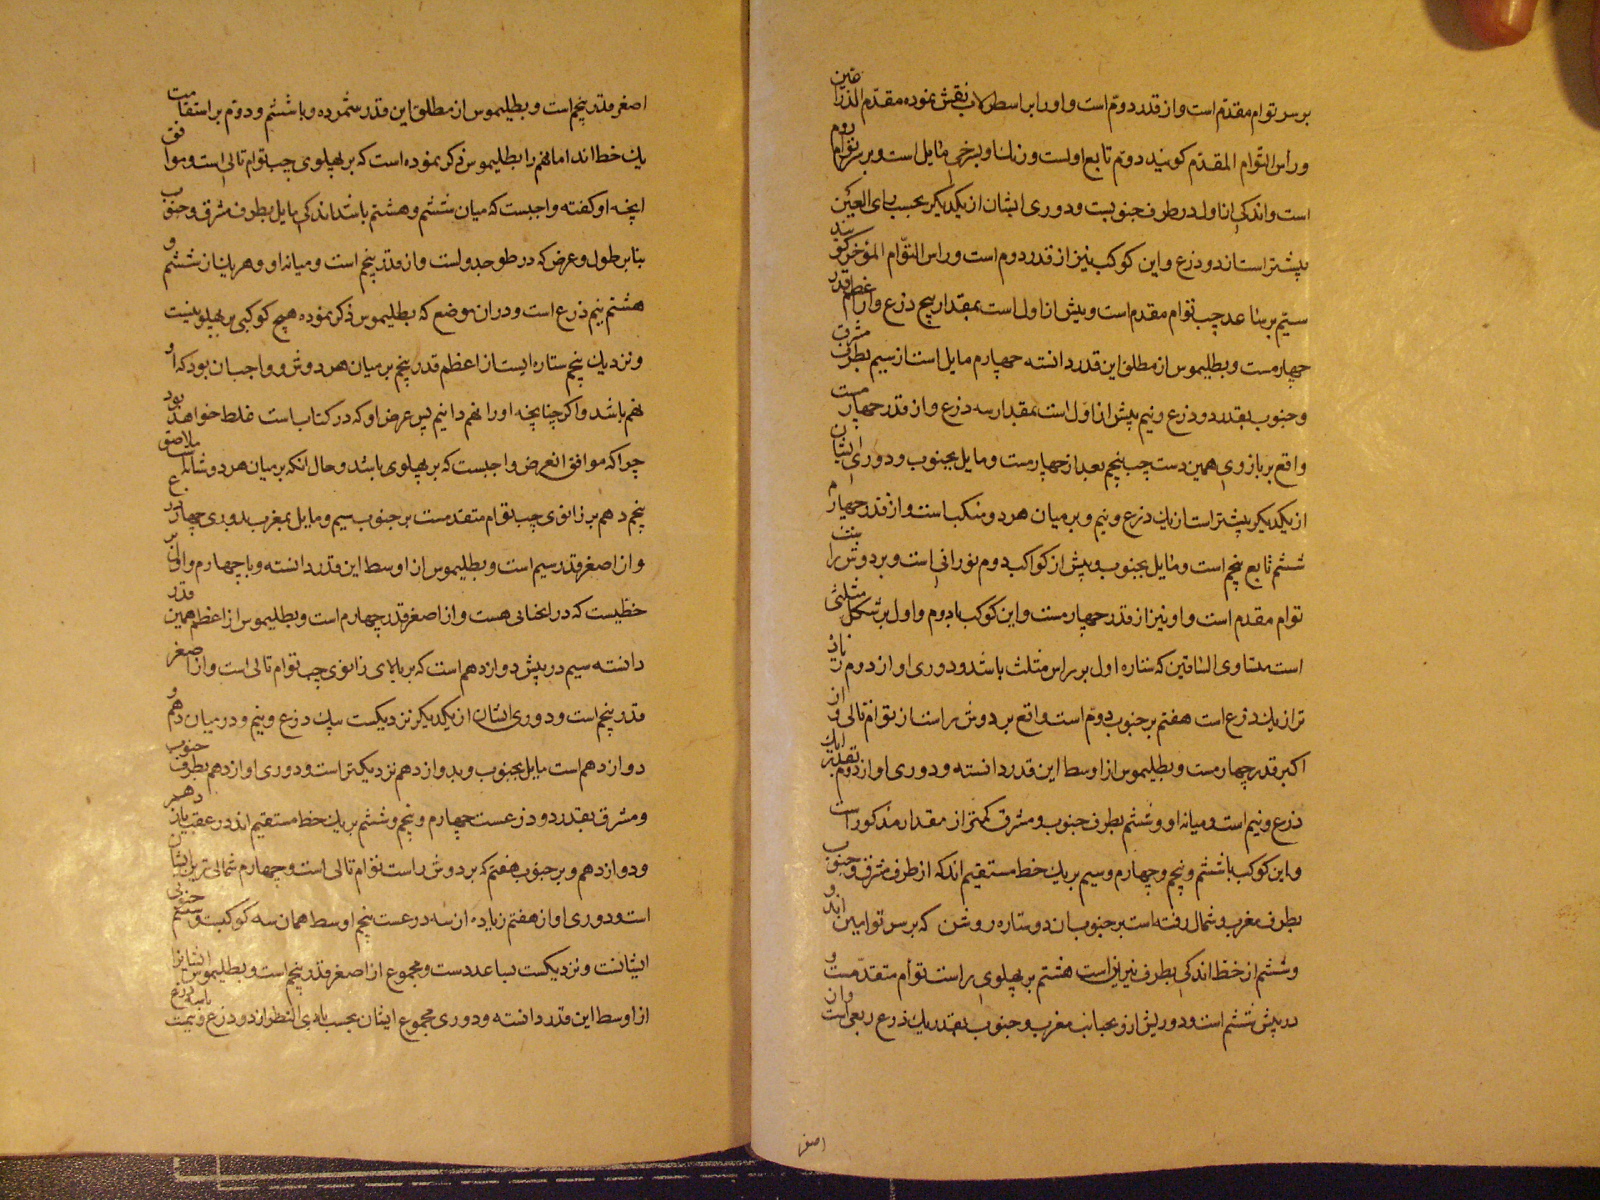 بر سر توام مقدّم است و از قدر دوّم است و او را بر اسطرلاب نقش نموده مقدّم الذراعین
و رأس التوام المقدّم کویند دوّم تابع اولست و نزد او بسرخی مایل است و بر سر توام دوم
است و اندکی از اول در طرف جنوبیست و دوری ایشان از یکدیکر بحسب رای العین
بیشتر است از دو ذرع و این کوکب نیز از قدر دوم است و راس التوّام المؤخر کویند
سیّم بر ساعد چپ توام مقدم است و پیش از اول است بمقدار پنج ذرع و از اعظم قدر
چهارمست و بطلیموس از مطلق این قدر دانسته چهارم مایل است از سیم بطرف مشرق
و جنوب بقدر دو ذرع و نیم پیش از اوّل است بمقدار سه ذرع و از قدر چهارمست
واقع بر بازوی همین دست چپ پنجم بعد از چهارمست و مایل بجنوب و دوری ایشان
از یکدیکر بیشتر است از یک ذرع و نیم و بر میان هر دو منکب است و از قدر چهارم
ششم تابع پنجم است و مایل بجنوب و پیش از کواکب دوم نورانی است و بر دوش راست
توام مقدم است و او نیز از قدر چهارمست و این کوکب با دوم و اول بر شکل مثلثی
است متساوی الساقین که ستاره اول بر راس مثلث باشد و دوری او از دوم زیاد
تر از یک ذرع است هفتم بر جنوب دوّم است واقع بر دوش راست از توام تالی و از
اکبر قدر چهارمست و بطلیموس از اوسط این قدر دانسته و دوری او از دوم بقدر یک
ذرع و نیم است و میانه او و ششم بطرف جنوب و مشرق کمتر از مقدار مذکور است
و این کوکب با ششم و پنجم و چهارم و سیم بر یک خط مستقیم اند که از طرف مشرق و جنوب
بطرف مغرب و شمال رفته است بر جنوب ان دو ستاره روشن که بر سر توامین اند و
و ششم از خط اندکی بطرف نیرین است هشتم بر پهلوی راست توأم متقدّمست و
در پیش ششم است و دوریش از و بجانب مغرب و جنوب بقدر یک ذرع ربعی است و ان
اصغر
اصغر قدر پنجم است و بطلیموس از مطلق این قدر شمرده و با ششم و دوّم بر استقامت
یک خط اند اما نهم را بطلیموس ذکر نموده است که بر پهلوی چپ توام تالی است و موافق
انچه او کفته واجبست که میان ششم و هشتم باشد اندکی مایل بطرف مشرق و جنوب
بنابر طول و عرض که در طو جدولست و از قدر پنجم است و میانه او و هر یک از ششم و
هشتم نیم ذرع است و در ان موضع که بطلیموس ذکر نموده هیچ کوکبی بر پهلو نیست
و نزدیک پنجم ستاره ایست از اعظم قدر پنجم بر میان هر دو دوش و واجب ان بود که او
نهم باشد و اکر چنانچه او را نهم دانیم پس عرض او که در کتاب است غلط خواهد بود
چرا که موافق ان عرض واجبست که بر پهلوی باشد و حال انکه بر میان هر دو شانه است ملاصق
پنجم دهم بر زانوی چپ توام متقدمست بر جنوب سیم و مایل بمغرب بدوری چهار ذرع
و از اصغر قدر سیم است و بطلیموس از اوسط این قدر دانسته و با چهارم و اول بر
خطّیست که در انحنایی هست و از اصغر قدر چهارم است و بطلیموس از اعظم همین قدر
دانسته سیم در پیش دوازدهم است که بر بالای زانوی چپ توام تالی است و از اصغر
قدر پنجم است و دوری ایشان از یکدیکر نزدیکست بیک ذرع و نیم و در میان دهم و
دوازدهم است مایل بجنوب و بدوازدهم نزدیکتر است و دوری او از دهم بطرف جنوب
و مشرق بقدر دو ذرعست چهارم و پنجم و ششم بر یک خط مستقیم اند در عقب یازدهم
و دوازدهم و بر جنوب هفتم که بر دوش راست توام تالی است و چهارم شمالی ترین ایشان
است و دوری او از هفتم زیاده از سه ذرعست پنجم اوسط همان سه کوکب و ششم جنوبی
ایشانست و نزدیکست بساعد دست و مجموع از اصغر قدر پنجم است و بطلیموس ایشانرا
از اوسط این قدر دانسته و دوری مجموع ایشان بحسب بادی النظر از دو ذرع و نیمست تا سه ذرع